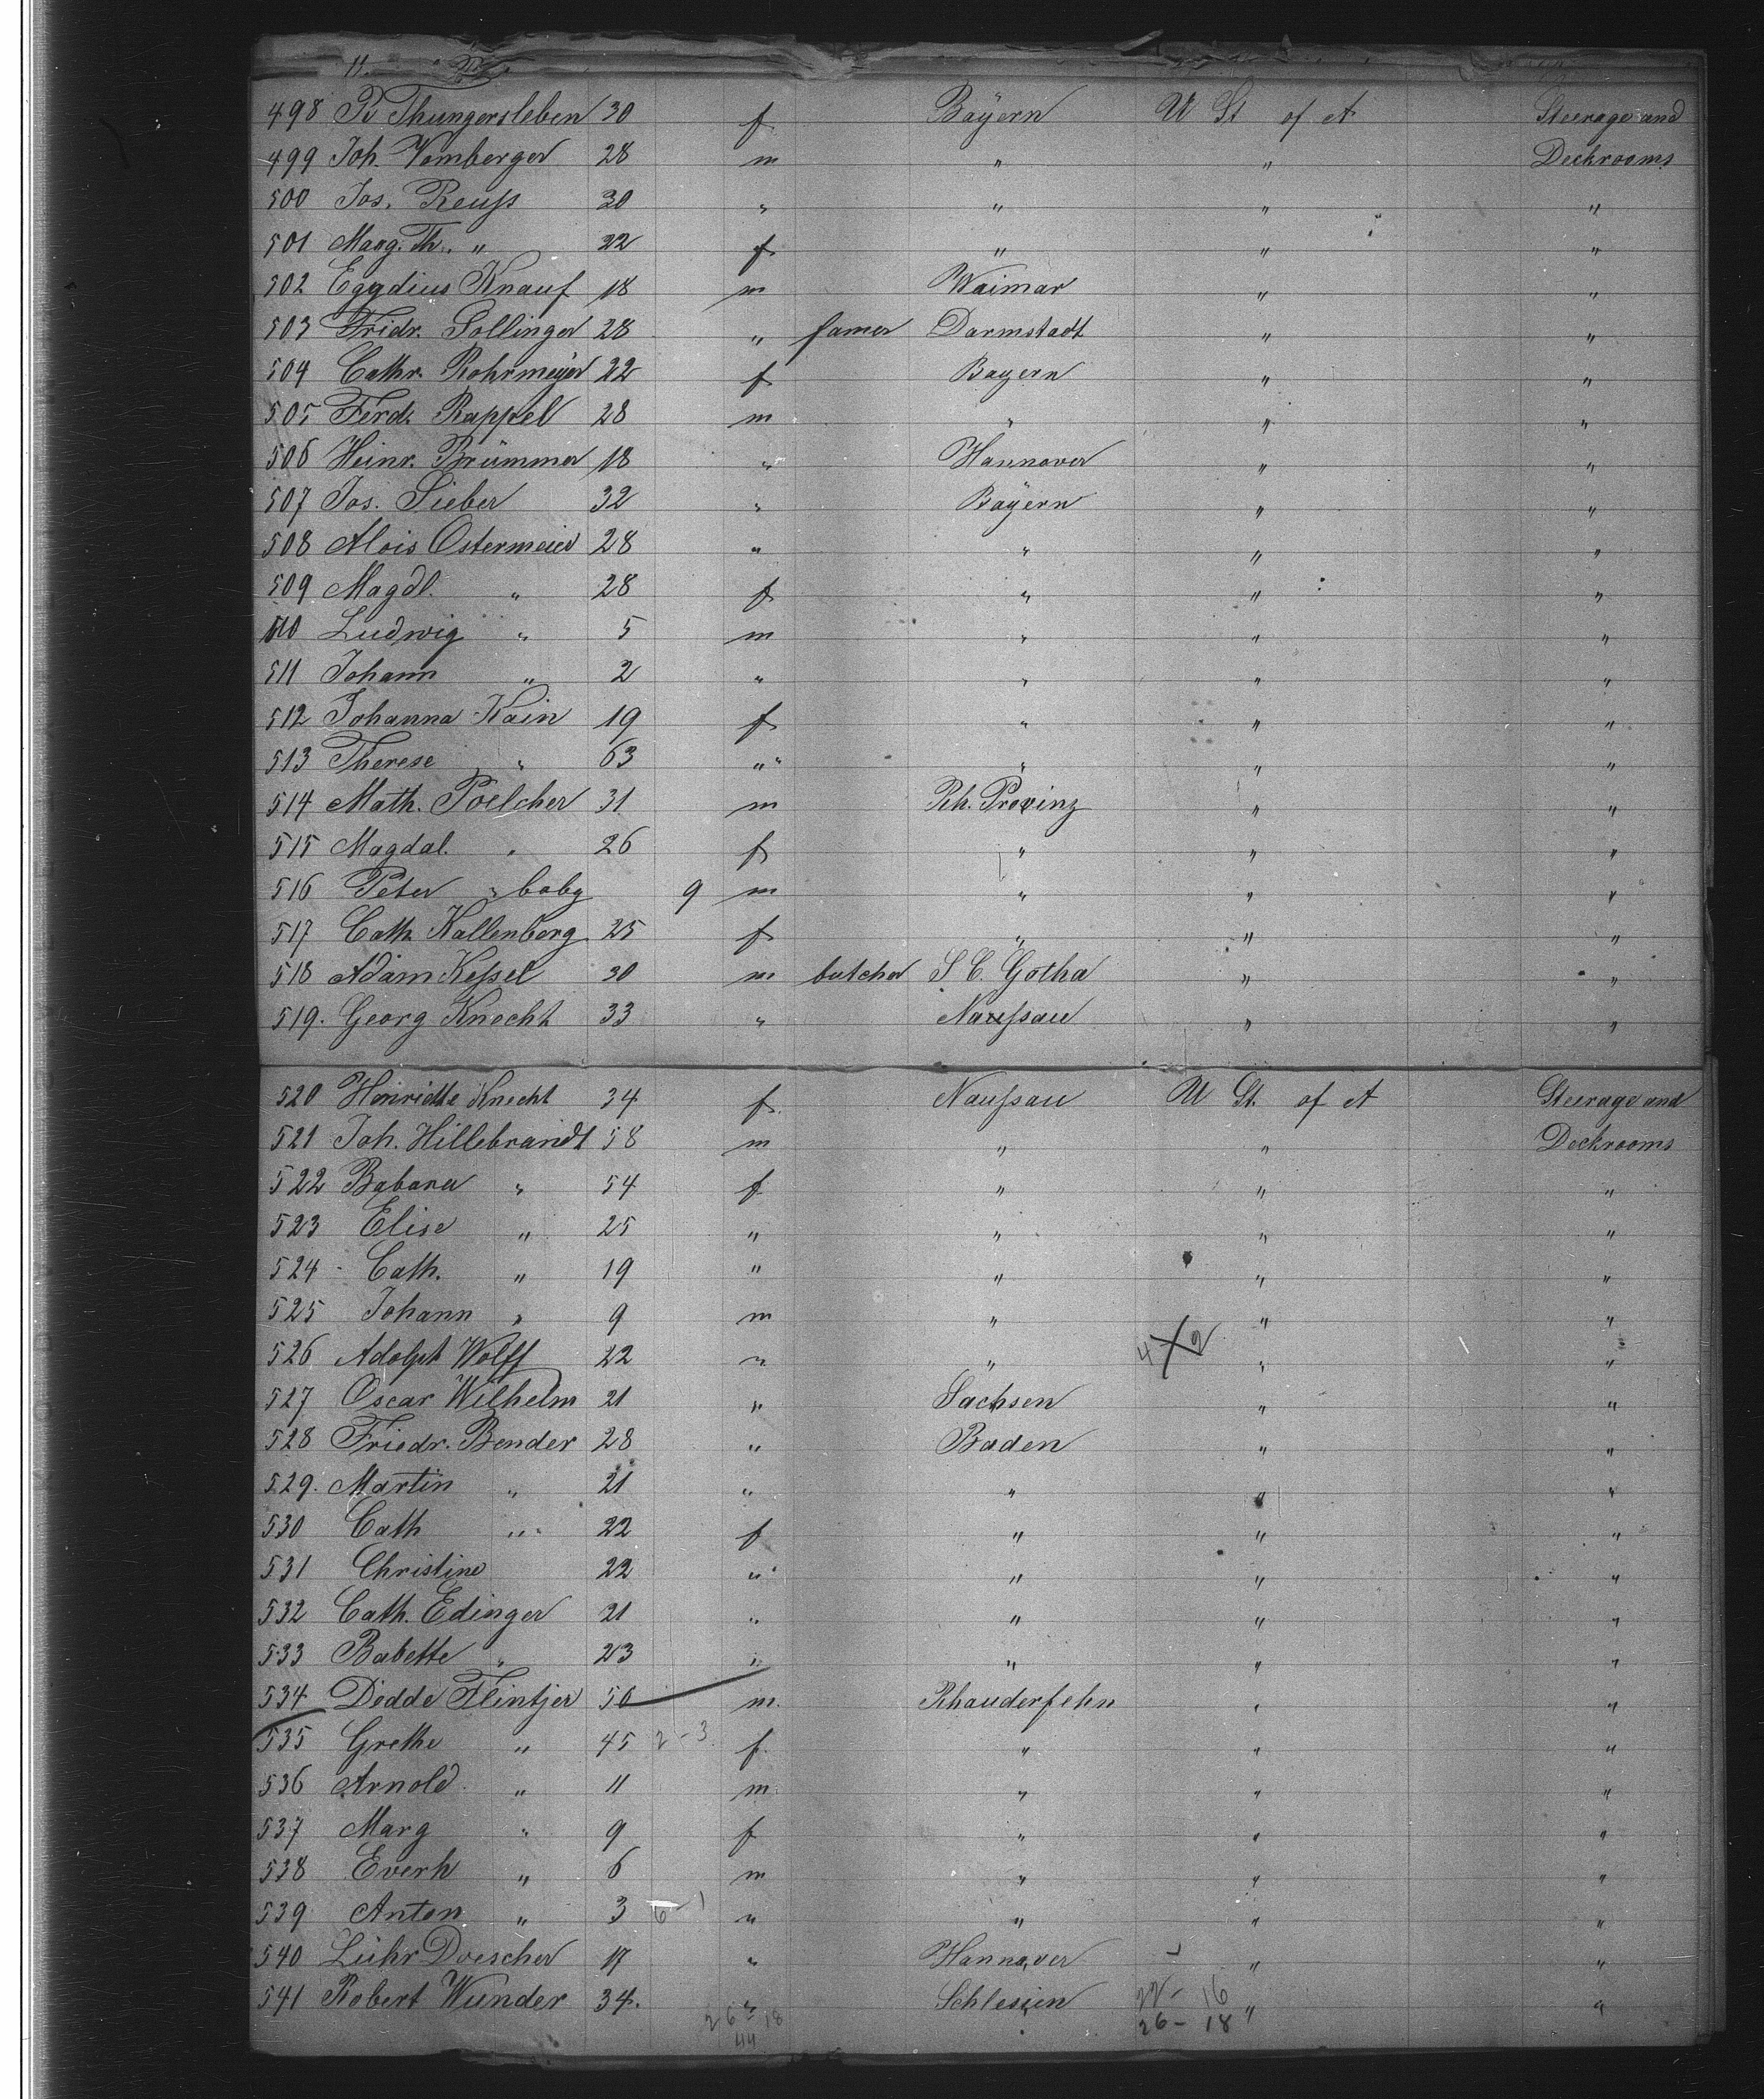 498 R Thungersleben 30 f Bayern U St of A Steerage and
499 Joh. Vomberger 28 m " " Deckrooms
500 Jos. Reuſs 30 " " " "
501 Marg. Th. " 22 f " " "
502 Egydius Knauf 18 m Waimar " "
503 Fridr. Sollinger 28 " famer Darmstadt " "
504 Cathr. Rohrmeyer 22 f Bayern " "
505 Ferd. Rappel 28 m " " "
506 Heinr. Brümmer 18 " Hannover " "
507 Jos. Sieber 32 " Bayern " "
508 Alois Ostermeier 28 " " " "
509 Magdl. " 28 f " " "
510 Ludwig " 5 m " " "
511 Johann " 2 " " " "
512 Johanna Kain 19 f " " "
513 Therese " 63 " " " "
514 Math. Poelcher 31 m Rh. Provinz " "
515 Magdal. " 26 f " " "
516 Peter " baby 9 m " " "
517 Cath. Kallenberg 25 f " " "
518 Adam Keſsel 30 m butcher S. C. Gotha " "
519. Georg Knecht 33 " Nauſsau " "
520 Henridte Knecht 34 f. Nauſsau U St. of A Steerage and
521 Joh. Hillebrandt 58 m " " Deckrooms
522 Babara " 54 f " " "
523 Elise " 25 " " " "
524 Cath. " 19 " " " "
525 Johann " 9 m " " "
526 Adolph Wolff 22 " " 4 X 2 " "
527 Oscar Wilhelm 21 " Sachsen " "
528 Friedr. Bender 28 " Baden " "
529. Martin " 21 " " " "
530 Cath " 22 f " " "
531 Christine 22 " " " "
532 Cath. Edinger 21 " " " "
533 Babette " 23 " " " "
534 Dodde Flintjer 50 m. Rhauderfehn " "
535 Grethe " 45 2-3 f. " " "
536 Arnold " 11 m " " "
537 Marg " 9 f " " "
538 Everh " 6 m " " "
539 Anton " 3 6-1 " " " "
540 Lühr Doescher 17 " Hannover " "
541 Robert Wunder 34. " Schlesien 22- 16 " "
26-18 26-18
44